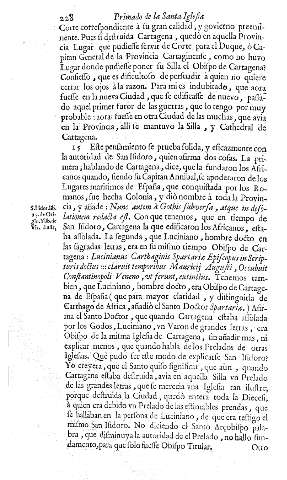 228 Primado de la Santa Iglesia
Corte correspondiente à su gran calidad, y govierno preemi-
nente. Pues si destruida Cartagena, quedò en aquella Provin-
cia Lugar que pudiesse servir de Corte para el Duque, ò Ca-
pitan General de la Provincia Cartaginense, como no huvo
Lugar donde pudiesse poner su Silla el Obispo de Cartagena?
Confiesso, que es dificultoso de persuadir à quien no quiere
cerrar los ojos à la razon. Para mi es indubitable, que aora
fuesse en la nueva Ciudad, que se edificasse de nuevo, passa-
do aquel primer furor de las guerras, que lo tengo por muy
probable: aora fuesse en otra Ciudad de las muchas, que avia
en la Provincia, alli se mantuvo la Silla, y Cathedral de
Cartagena.
15 Este pensamiento se prueba solida, y eficazmente con
la autoridad de San Isidoro, quien afirma dos cosas. La pri-
mera, hablando de Cartagena, dice, que la fundaron los Afri-
canos quando, siendo su Capitan Annibal, se apoderaron de los
Lugares maritimos de España, que conquistada por los Ro-
manos, fue hecha Colonia, y diò nombre à toda la Provin-
cia, y añade: Nunc autem à Gothis subversa, atque in deso-
lationem redacta est. Con que tenemos, que en tiempo de
San Isidoro, Cartagena la que edificaron los Africanos, esta-
ba assolada. La segunda, que Luciniano, hombre docto en
las sagradas letras, era en su mismo tiempo Obispo de Car-
tagena: Lucinianus Carthaginis Spartariæ Episcopus in Scrip-
turis doctus::: claruit temporibus Mauricij Augusti, Occubuit
Constantinopoli Veneno, ut ferunt, extinctus. Tenemos tam-
bien, que Luciniano, hombre docto, era Obispo de Cartage-
na de España; que para mayor claridad, y distinguirla de
Carthago de Africa, añadiò el Santo Doctor Spartariæ. Afir-
ma el Santo Doctor, que quando Cartagena estaba assolada
por los Godos, Luciniano, un Varon de grandes letras, era
Obispo de la misma Iglesia de Cartagena, sin añadir mas, ni
explicar menos, que quando habla de los Prelados de otras
Iglesias. Què pudo ser este modo de explicarse San Isidoro?
Yo creyera, que el Santo quiso significar, que aun, quando
Cartagena estaba destruida, avia en aquella Silla un Prelado
de las grandes letras, que se merecia una Iglesia tan ilustre,
porque destruida la Ciudad, quedò entera toda la Diocesi,
à quien era debido un Prelado de las estimables prendas, que
se hallaban en la persona de Luciniano, de que era testigo el
mismo San Isidoro. No diciendo el Santo Arçobispo pala-
bra, que disminuya la autoridad de el Prelado, no hallo fun-
damento, para que solo fuesse Obispo Titular. Otro